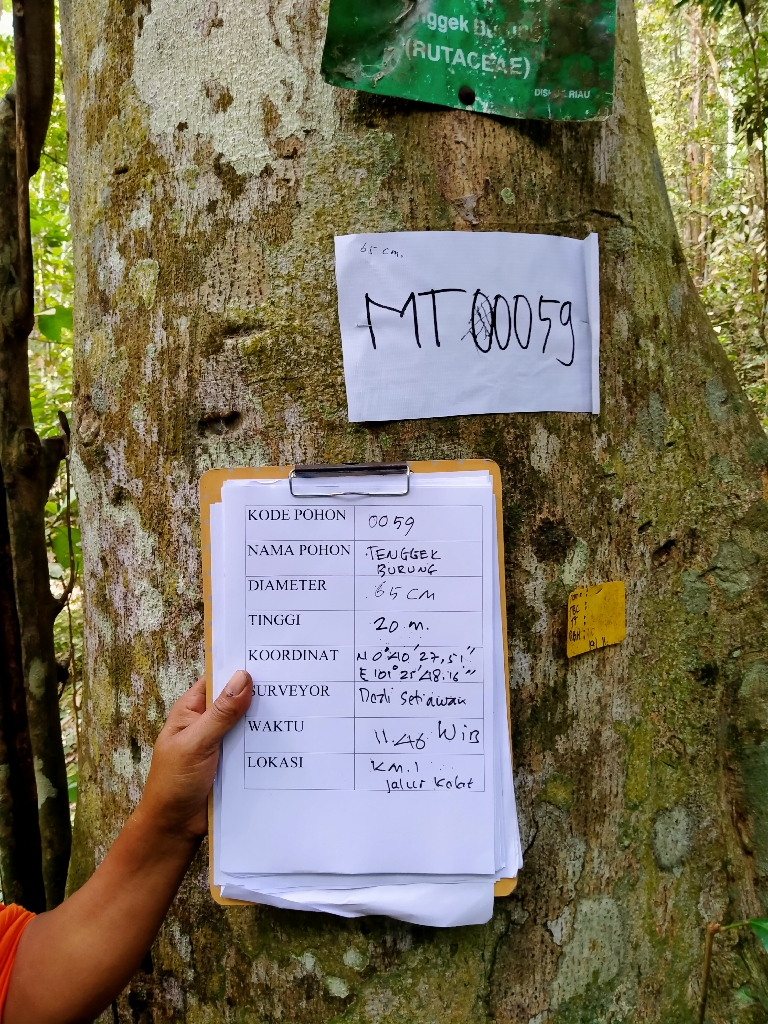 nggek Burung
(RUTACEAE)
DISHUT RIAU
65 cm.
MT 00059
KODE POHON 0059
NAMA POHON TENGGEK
BURUNG
DIAMETER 65 CM
TINGGI 20 m.
KOORDINAT N 0°40'27,51"
E 101°25'48.16"
SURVEYOR Dedi Setiawan
WAKTU 11.46 WIB
LOKASI KM.1
jalur Kabt